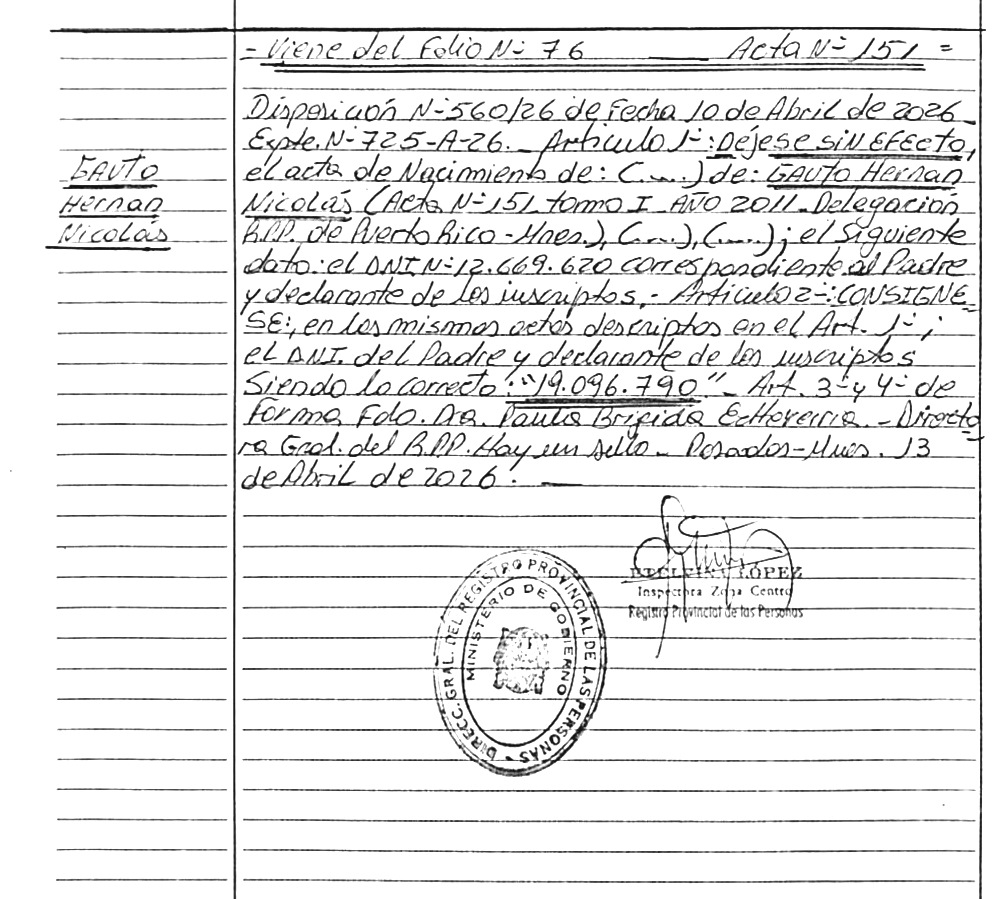 = Viene del Folio Nº 76 ___ Acta Nº 151 =
Disposición Nº 560/26 de Fecha 10 de Abril de 2026_
Expte. Nº 725-A-26._ Artículo 1º: Déjese SIN EFECTO,
GAUTO
Hernan
Nicolás
el acta de Nacimiento de: (....) de: GAUTO Hernan
Nicolás (Acta Nº 151 tomo I AÑO 2011_ Delegación
R.P.P. de Puerto Rico - Mnes.), (....), (....); el Siguiente
dato: el DNI Nº 12.669.620 correspondiente al Padre
y declarante de los inscriptos.- Artículo 2º: CONSIGNE
SE:, en los mismos actos descriptos en el Art. 1º ;
el DNI. del Padre y declarante de los inscriptos
Siendo lo correcto: "19.096.790" _ Art. 3º y 4º de
Forma Fdo. Dra. Paula Brigida Echeverria. _ Directo
ra Gral. del R.P.P. Hay un sello _ Posadas - Mnes. 13
de Abril de 2026. ___
LÓPEZ
Inspectora Zona Centro
Registro Provincial de las Personas
DIRECC. GRAL. DEL REGISTRO PROVINCIAL DE LAS PERSONAS -
MINISTERIO DE GOBIERNO